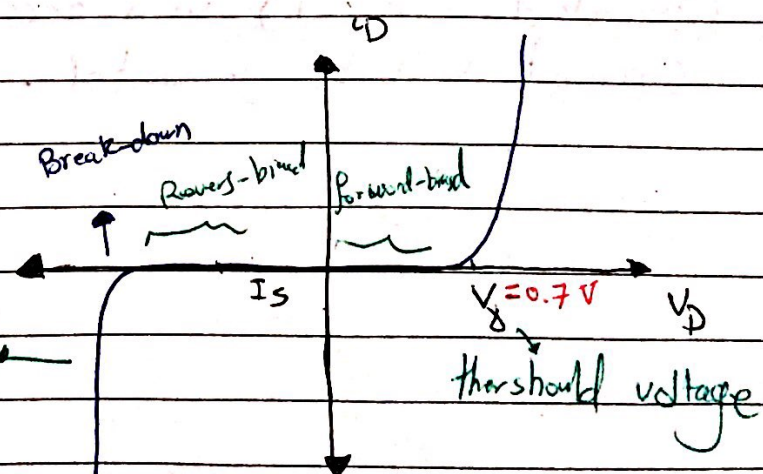 iD
Break-down
Revers-biasd
forward-biasd
Is
Vγ = 0.7 V
VD
thershould voltage